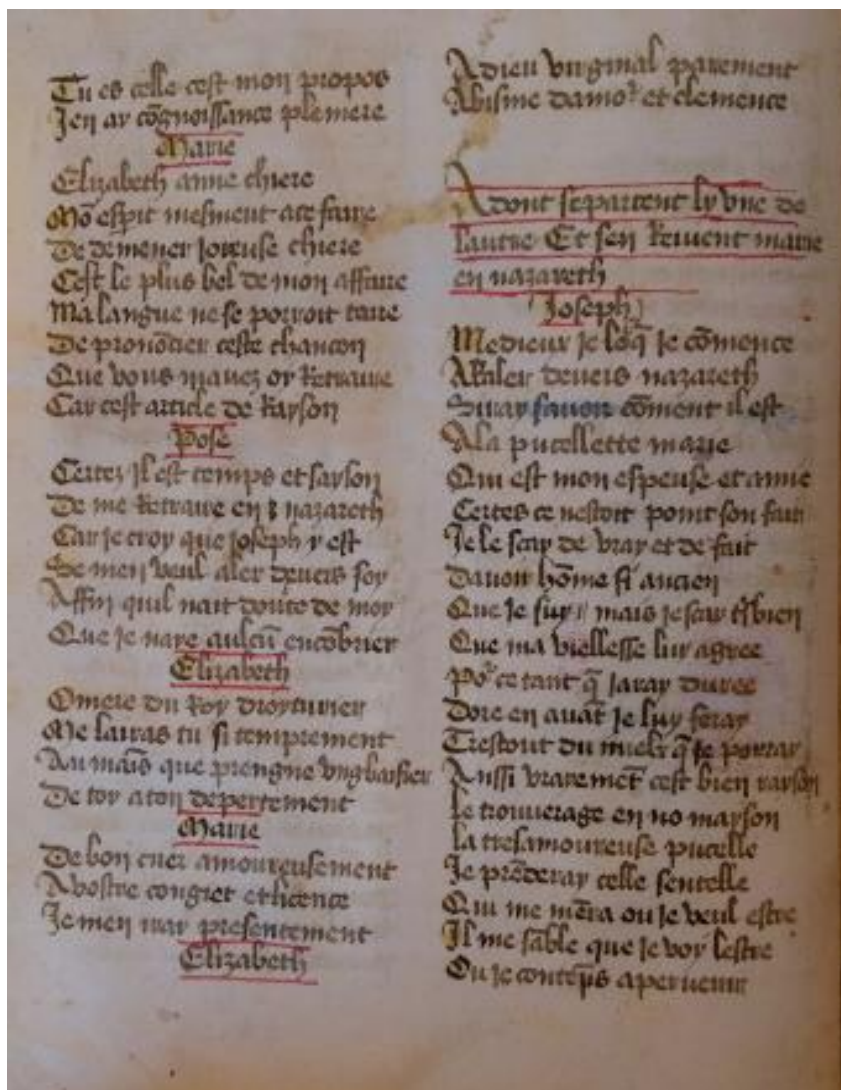 Tu es celle cest mon propos
Jen ay cõgnoissance pleniere
Marie
Elizabeth amie chiere
Mõ espit mesment a ce faire
De demener joieuse chiere
Cest le plus bel de mon affaire
Ma langue ne se porroit taire
De pronõcier ceste chancon
Que vous mavez or Retraire
Car cest article de Rayson
Pose
Certez jl est temps et sayson
De me Retraire en nazareth
Car je croy que joseph y est
Se men veul aler devers soy
Affin quil nait doute de moy
Que je naye aulcũ encõbrier
Elizabeth
O mere du Roy droyturier
Me lairas tu si temprement
Au mains que prengne vng baisier
De toy a ton depertement
Marie
De bon cuer amoureusement
A vostre congiet et licence
Je men iray presentement
Elizabeth
Adieu virginal parement
Abisme damor et clemence
Adont se partent ly vne de
lautre Et sen Revient marie
en nazareth
Joseph
je cõmence
Raler devers nazareth
savoir cõment il est
A la pucellette marie
Qui est mon espeuse et amie
Certes ce nestoit point son fait
Je le scay de vray et de fait
Davoir hõme si ancien
Que je suy mais je scay bien
Que ma viellesse luy agree
Por ce tant q̃ jaray duree
Dore en avãt je luy feray
Trestout du mielx q̃ je porray
Aussi vraiemẽt cest bien rayson
Le trouverage en no mayson
La tresamoureuse pucelle
Je prẽderay celle sentelle
Qui me mẽra ou je veul estre
Il me sãble que je voy lestre
Ou je contẽps a pervenir